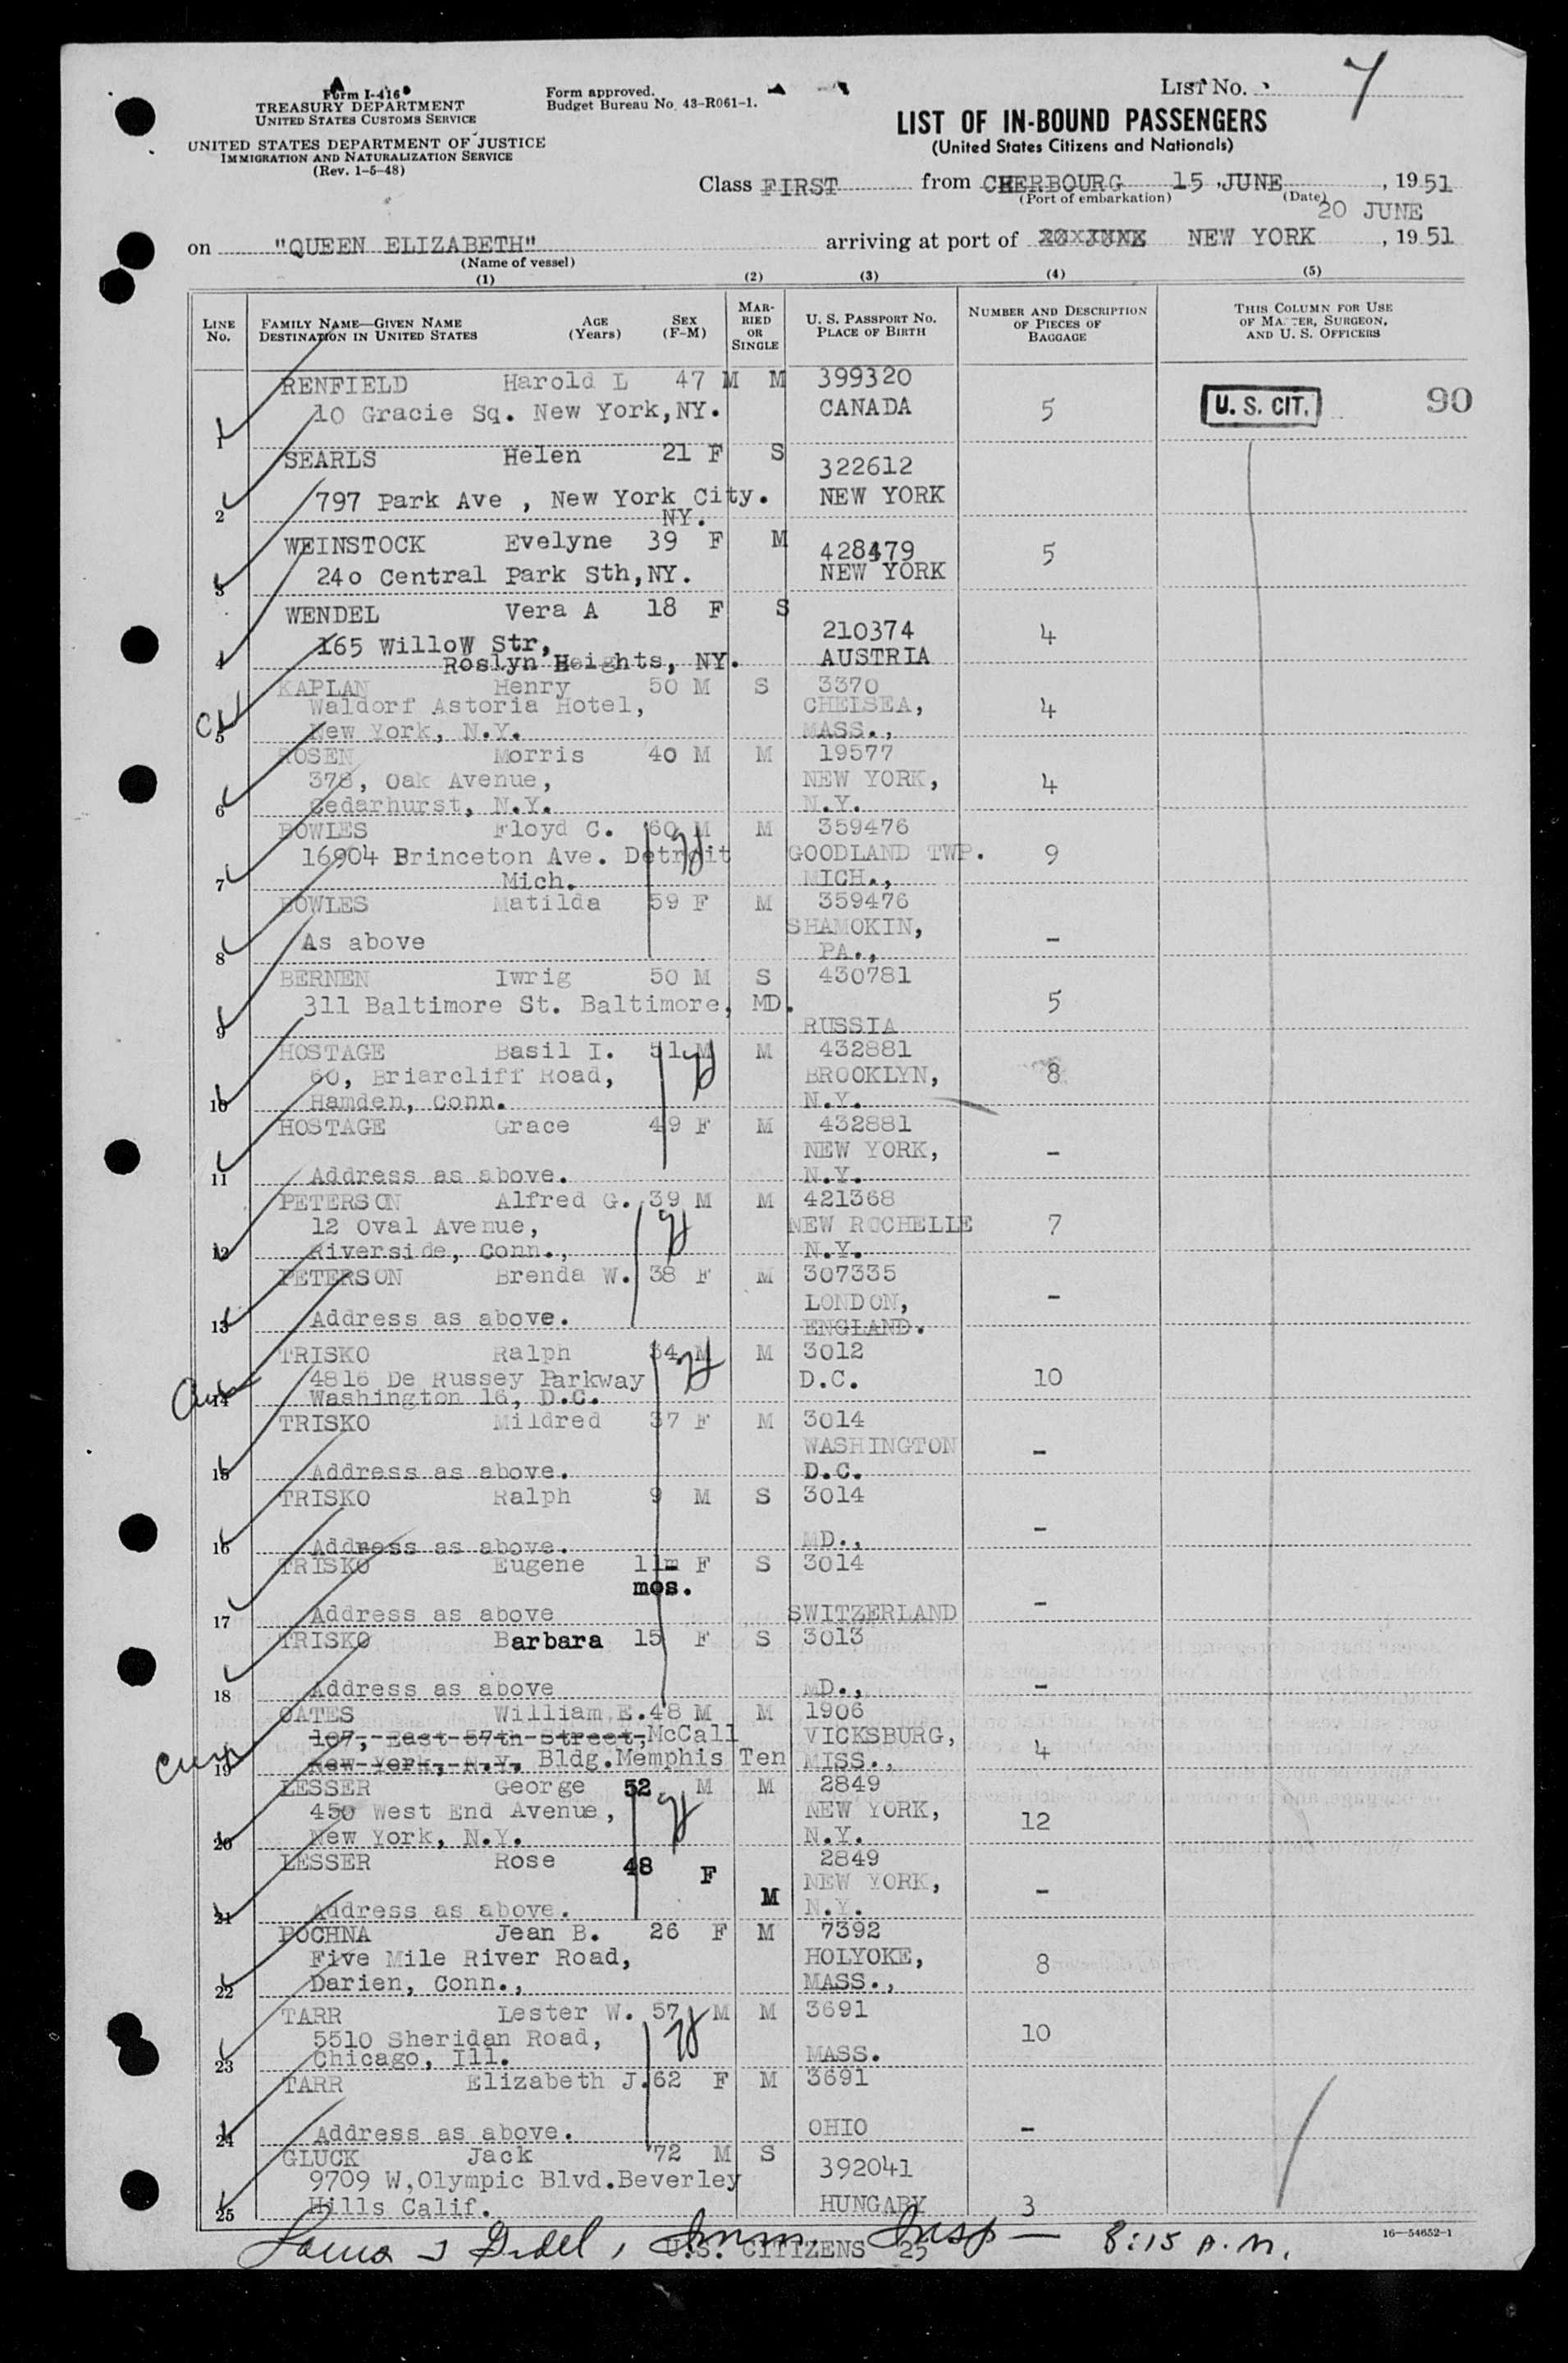 Form I-416
TREASURY DEPARTMENT
UNITED STATES CUSTOMS SERVICE
UNITED STATES DEPARTMENT OF JUSTICE
IMMIGRATION AND NATURALIZATION SERVICE
(Rev. 1-5-48)
Form approved.
Budget Bureau No. 43-R061-1.
LIST No. 7
LIST OF IN-BOUND PASSENGERS
(United States Citizens and Nationals)
Class FIRST from CHERBOURG 15 JUNE, 1951
(Port of embarkation) (Date)
20 JUNE
on "QUEEN ELIZABETH" arriving at port of NEW YORK, 1951
(Name of vessel)
(1) (2) (3) (4) (5)
LINE No.
FAMILY NAME—GIVEN NAME AGE (Years) SEX (F-M)
DESTINATION IN UNITED STATES
MARRIED OR SINGLE
U. S. PASSPORT No.
PLACE OF BIRTH
NUMBER AND DESCRIPTION OF PIECES OF BAGGAGE
THIS COLUMN FOR USE OF MASTER, SURGEON, AND U. S. OFFICERS
RENFIELD Harold L 47 M M 399320
1 10 Gracie Sq. New York,NY. CANADA 5 U. S. CIT. 90
SEARLS Helen 21 F S 322612
2 797 Park Ave , New York City. NEW YORK
NY.
WEINSTOCK Evelyne 39 F M 428479
3 240 Central Park Sth,NY. NEW YORK 5
WENDEL Vera A 18 F S 210374
4 165 Willow Str, 4
Roslyn Heights, NY. AUSTRIA
KAPLAN Henry 50 M S 3370
Waldorf Astoria Hotel, CHELSEA, 4
5 New York, N.Y. MASS.,
ROSEN Morris 40 M M 19577
378, Oak Avenue, NEW YORK, 4
6 Cedarhurst, N.Y. N.Y.
BOWLES Floyd C. 60 M M 359476
16904 Princeton Ave. Detroit GOODLAND TWP. 9
7 Mich. MICH.,
BOWLES Matilda 59 F M 359476
8 As above SHAMOKIN, -
PA.,
BERNEN Iwrig 50 M S 430781
9 311 Baltimore St. Baltimore, MD. 5
RUSSIA
HOSTAGE Basil I. 51 M M 432881
60, Briarcliff Road, BROOKLYN, 8
10 Hamden, Conn. N.Y.
HOSTAGE Grace 49 F M 432881
NEW YORK, -
11 Address as above. N.Y.
PETERSON Alfred G. 39 M M 421368
12 Oval Avenue, NEW ROCHELLE 7
12 Riverside, Conn., N.Y.
PETERSON Brenda W. 38 F M 307335
LONDON, -
13 Address as above. ENGLAND.
TRISKO Ralph 34 M M 3012
4816 De Russey Parkway D.C. 10
14 Washington 16, D.C.
TRISKO Mildred 37 F M 3014
WASHINGTON -
15 Address as above. D.C.
TRISKO Ralph 9 M S 3014
16 Address as above. MD., -
TRISKO Eugene 11m F S 3014
mos.
17 Address as above SWITZERLAND -
TRISKO Barbara 15 F S 3013
18 Address as above MD., -
OATES William E. 48 M M 1906
107, East 57th Street, McCall VICKSBURG, 4
19 New York, N.Y. Bldg.Memphis Ten MISS.,
LESSER George 52 M M 2849
450 West End Avenue, NEW YORK, 12
20 New York, N.Y. N.Y.
LESSER Rose 48 F M 2849
NEW YORK, -
21 Address as above. N.Y.
POCHNA Jean B. 26 F M 7392
Five Mile River Road, HOLYOKE, 8
22 Darien, Conn., MASS.,
TARR Lester W. 57 M M 3691
5510 Sheridan Road, 10
23 Chicago, Ill. MASS.
TARR Elizabeth J. 62 F M 3691
24 Address as above. OHIO -
GLUCK Jack 72 M S 392041
9709 W,Olympic Blvd.Beverley
25 Hills Calif. HUNGARY 3
16—54652-1
Imm. Insp — 8:15 P.M.
U.S. CITIZENS 25